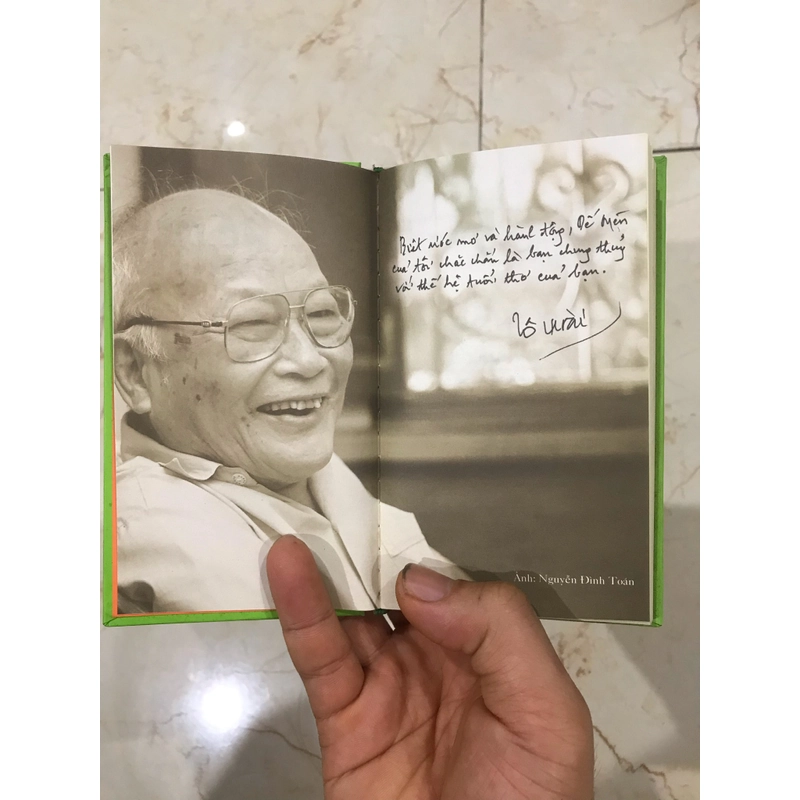 Biết ước mơ và hành động, Dế Mèn
của tôi chắc chắn là bạn chung thuỷ
với thế hệ tuổi thơ của bạn.
Tô Hoài
Ảnh: Nguyễn Đình Toán